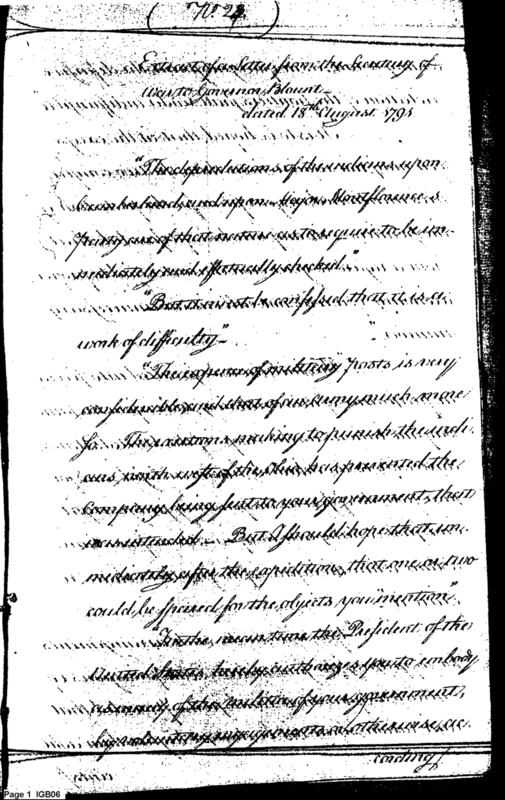 No. 22.
Extract of a Letter from the Secretary of
War to Governor Blount—
dated 18th August 1791
"The depredations of the indians upon
Cumberland, and upon Major Montflorence's
Party are of that nature as to require to be im-
mediately and effectually checked."
"But it must be confessed that it is a
work of difficulty"—
"The expence of military posts is very
considerable, and that of an army much more
so. The exertions making to punish the indi-
ans north west of the Ohio, has prevented the
Company being sent to your government, that
was intended— But I should hope that im-
mediately after the expedition, that one or two
could be spared for the objects you mention".
"In the mean time the President of the
United States, hereby authorizes you to embody
as many of the Militia of your government,
by voluntary engagements or otherwise, ac-
cording
Page 1 IGB06